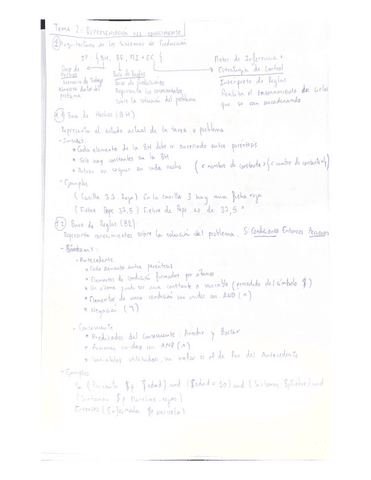 Tema 2: Representación del conocimiento
1 Arquitectura de los Sistemas de Producción
SP = { BH, BR, MI + EC }
Motor de Inferencia +
Estrategia de Control
Base de Hechos
Memoria de Trabajo
problema
Base de Reglas
Representa los conocimientos
sobre la solución del problema
Intérprete de Reglas
Realiza el encadenamiento de
que se van
Base de Hechos (BH)
Representa el estado actual de la tarea o problema
- Sintaxis:
• Cada elemento de la BH debe ir encerrado entre paréntesis
• Solo hay constantes en la BH
en cada hecho (< nombre de constante > < nombre de constante >)
- Ejemplos
(Casilla 3,2 Roja) En la casilla 3 hay una ficha roja
(Fiebre Pepe 37,5) Fiebre de Pepe es de 37,5.
Base de Reglas (BR)
Representa conocimientos sobre la solución del problema. Si Condiciones Entonces Acciones
- Sintaxis:
- Antecedente
• Cada elemento entre paréntesis
• Elementos de condición formados por átomos
• Un átomo puede ser una constante o variable (precedido del símbolo $)
• Elementos de una condición van unidos con AND (^)
• Negación (¬)
- Consecuente
• Predicados del Consecuente: Añadir y Borrar
• Acciones unidas con AND (^)
• Variables utilizadas, su valor es el de las del Antecedente
- Ejemplos
Si (Paciente $p $edad) and ($edad < 10) and (Síntoma $p fiebre) and
(Síntoma $p Manchas-rojas)
Entonces (Enfermedad $p varicela)